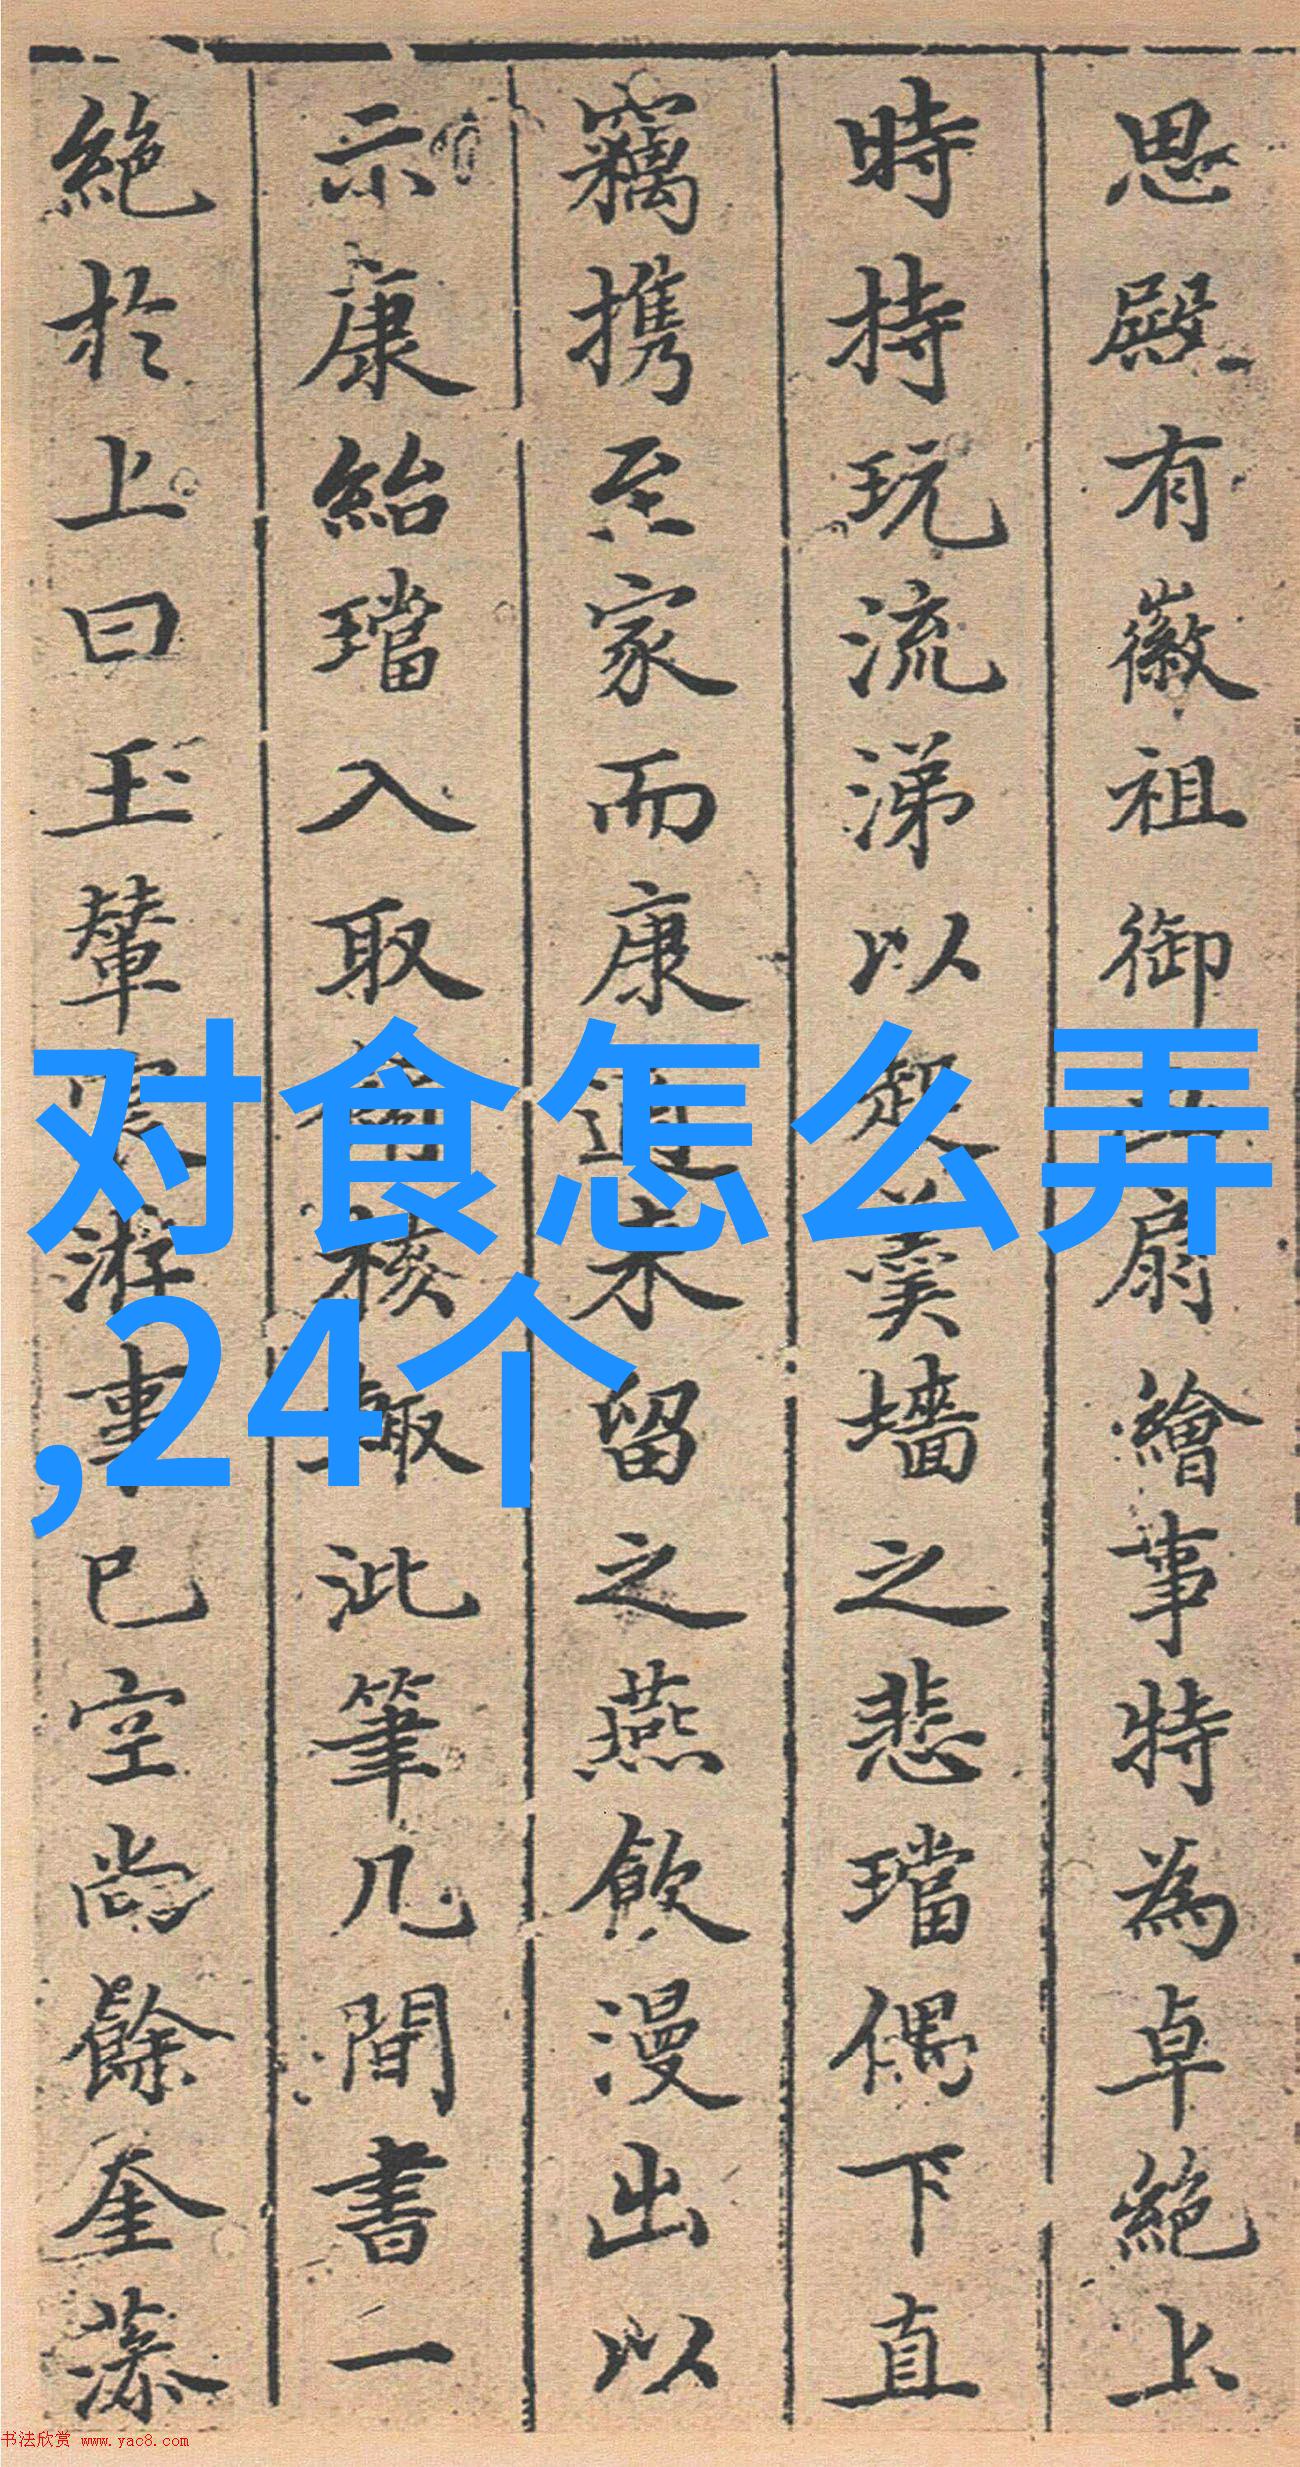 思殿有徽祖御扇繪事特為卓絕上
時持玩流涕以起羹墻之悲璫偶下直
竊携至家而康適來留之燕飲漫出以
示康紿璫入取核輒泚筆几間書一
絕於上曰玉輦宸游事已空尚餘奎藻
对食怎么弄
,24个
书法欣赏 www.yac8.com